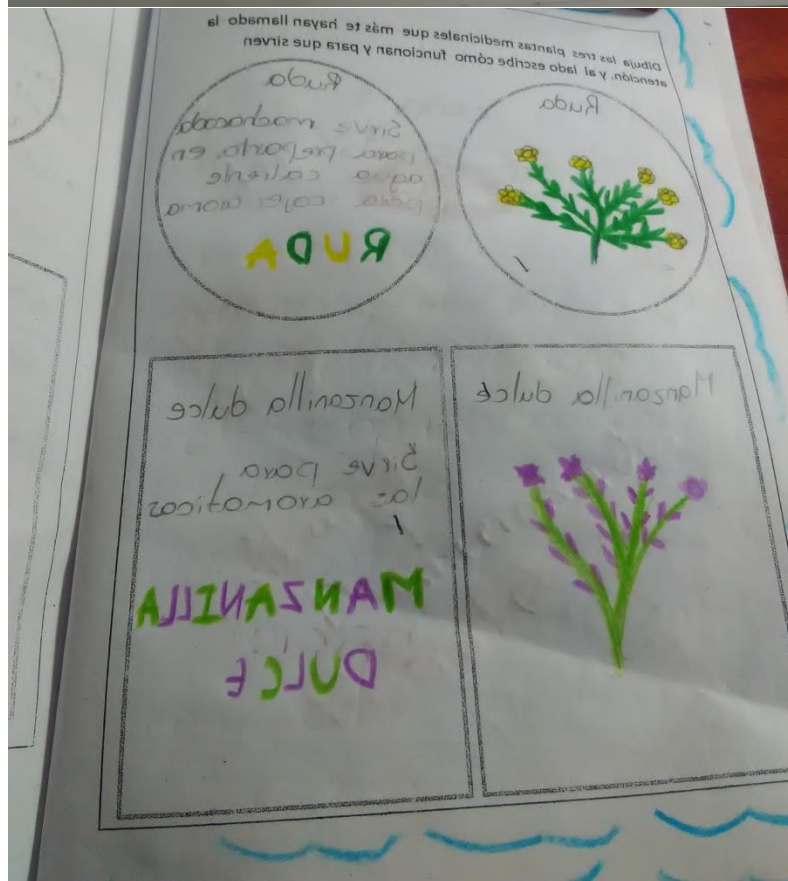 Dibuja las tres plantas medicinales que más te hayan llamado la
atención. y al lado escribe cómo funcionan y para que sirven
Ruda
Ruda
Sirve machacada
para preparla en
agua caliente
para cojer aroma
RUDA
Manzanilla dulce
Manzanilla dulce
Sirve para
las aromaticas
MANZANILLA
DULCE